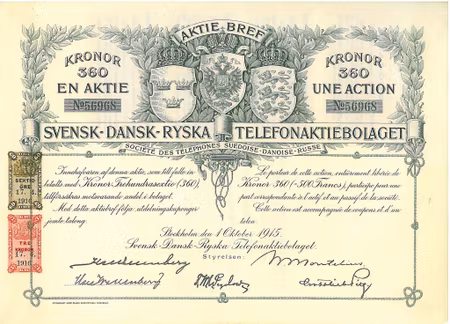 AKTIE BREF
KRONOR
360
EN AKTIE
No56968
KRONOR
360
UNE ACTION
No56968
SVENSK-DANSK-RYSKA TELEFONAKTIEBOLAGET
SOCIÉTÉ DES TÉLÉPHONES SUÉDOISE-DANOISE-RUSSE
Innehafvaren af denna aktie, som till fullo in-
betalt med Kronor Trehundrasextio (360),
tillförsäkras motsvarande andel i bolaget.
Med detta aktiebref följa utdelningskuponger
jemte talong.
Le porteur de cette action, entièrement libérée de
Kronor 360 (=500 Francs), participe pour une
part correspondante à l'actif et au passif de la société.
Cette action est accompagnée de coupons et d'un
talon.
Stockholm den 1 Oktober 1915.
Svensk-Dansk-Ryska Telefonaktiebolaget.
Styrelsen:
SEXTIO
ÖRE
17.
1916
TRE
KRONOR
17.
1916